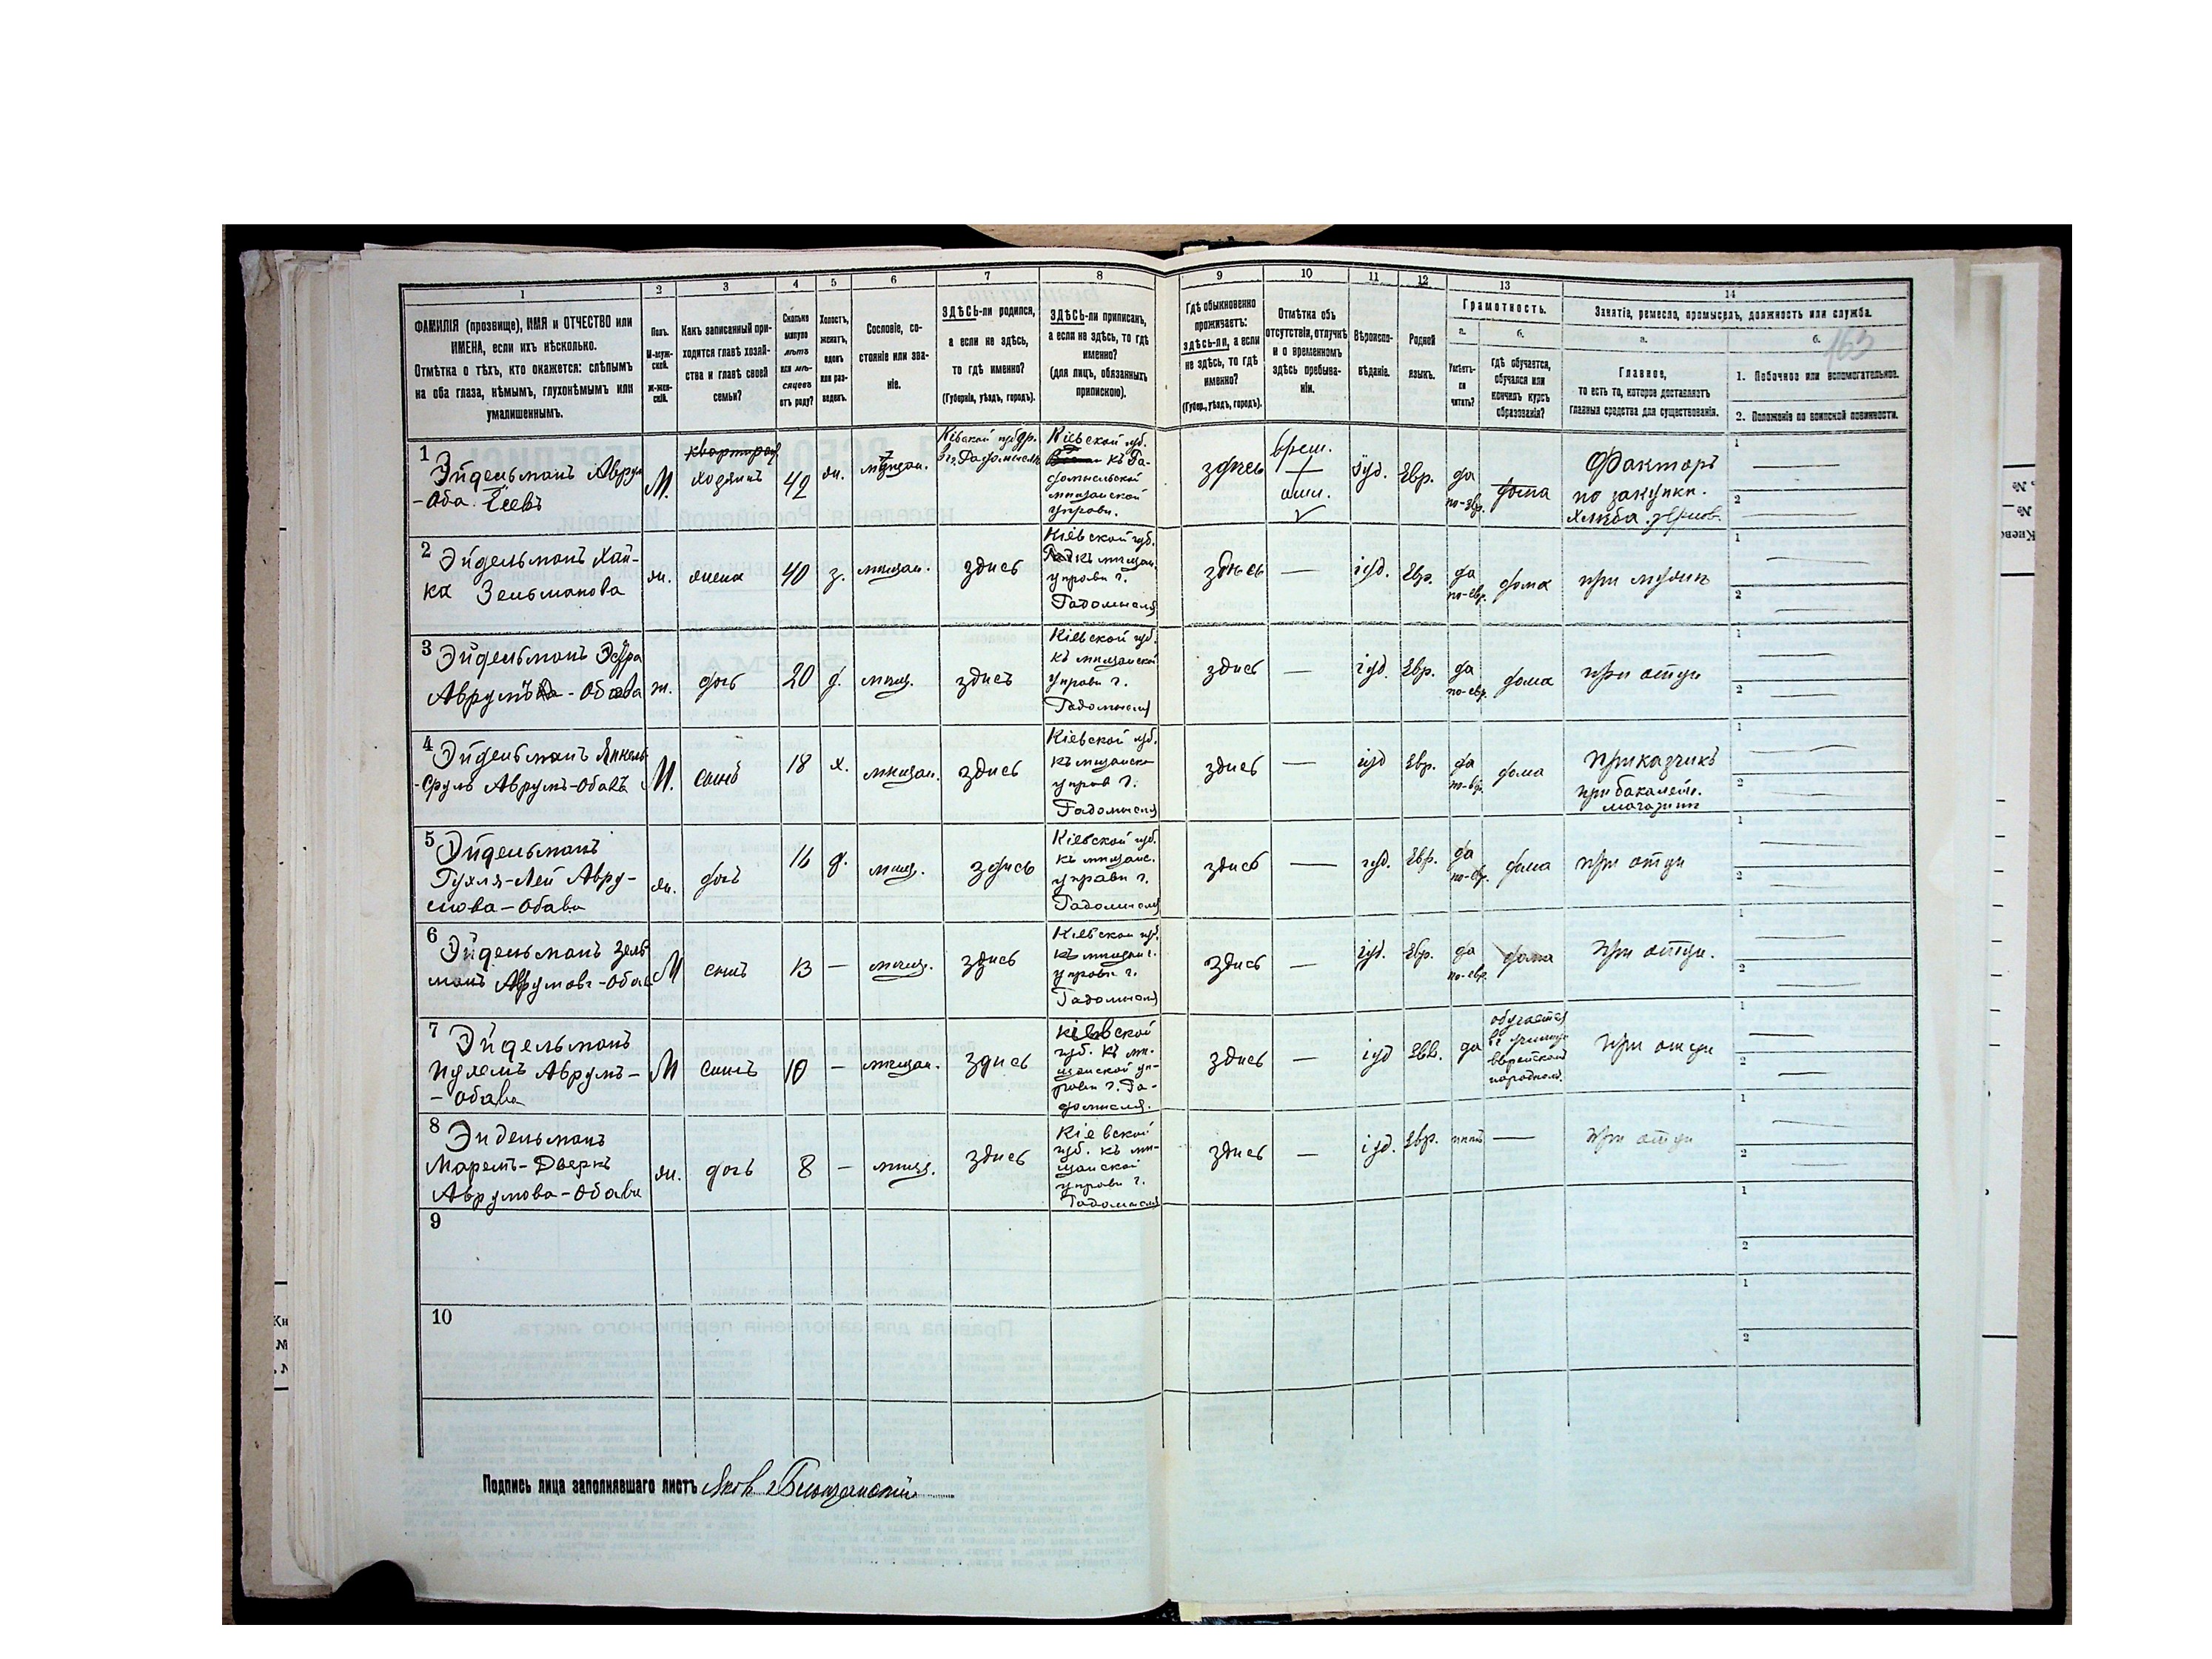 1 2 3 4 5 6 7 8 9 10 11 12 13 14
ФАМИЛІЯ (прозвище), ИМЯ и ОТЧЕСТВО или
ИМЕНА, если ихъ нѣсколько.
Отмѣтка о тѣхъ, кто окажется: слѣпымъ
на оба глаза, нѣмымъ, глухонѣмымъ или
умалишеннымъ.
Полъ.
М-муж-
ской.
Ж-жен-
скій.
Какъ записанный при-
ходится главѣ хозяй-
ства и главѣ своей
семьи?
Сколько
минуло
лѣтъ
или мѣ-
сяцевъ
отъ роду?
Холостъ,
женатъ,
вдовъ
или раз-
веденъ.
Сословіе, со-
стояніе или зва-
ніе.
ЗДѢСЬ-ли родился,
а если не здѣсь,
то гдѣ именно?
(Губернія, уѣздъ, городъ).
ЗДѢСЬ-ли приписанъ,
а если не здѣсь, то гдѣ
именно?
(для лицъ, обязанныхъ
припискою).
Гдѣ обыкновенно
проживаетъ:
здѣсь-ли, а если
не здѣсь, то гдѣ
именно?
(Губер., уѣздъ, городъ).
Отмѣтка объ
отсутствіи, отлучкѣ
и о временномъ
здѣсь пребыва-
ніи.
Вѣроиспо-
вѣданіе.
Родной
языкъ.
Грамотность.
а.
Умѣетъ-
ли
читать?
б.
гдѣ обучается,
обучался или
кончилъ курсъ
образованія?
Занятіе, ремесло, промыселъ, должность или служба.
а.
Главное,
то есть то, которое доставляетъ
главныя средства для существованія.
б.
163
1. Побочное или вспомогательное.
2. Положеніе по воинской повинности.
1
Эйдельманъ Аврум
-Оба
М.
квартиро
хозяинъ
42
ж.
мѣщан.
Кіевской губ.
Кіевской губ.
къ Ра-
домысльской
мѣщанской
управѣ.
здѣсь
іуд.
Евр.
да
по-евр.
дома
Факторъ
по закупкѣ
хлѣба
2
Эйдельманъ Хай-
ка Зельманова
ж.
жена
40
з.
мѣщан.
здѣсь
Кіевской губ.
къ мѣщан.
управѣ г.
Радомысля
здѣсь
—
іуд.
Евр.
да
по-евр.
дома
при мужѣ
3
Эйдельманъ
ж.
дочь
20
д.
мѣщ.
здѣсь
Кіевской губ.
къ мѣщанской
управѣ г.
Радомысля
здѣсь
—
іуд.
Евр.
да
по-евр.
дома
при отцѣ
4
Эйдельманъ Янкель
-Сруль Аврумъ-Обавъ
М.
сынъ
18
х.
мѣщан.
здѣсь
Кіевской губ.
къ мѣщанско
управ г.
Радомысля
здѣсь
—
іуд
Евр.
да
по-евр.
дома
Приказчикъ
при бакалейн.
магазинѣ
5
Эйдельманъ
Авру-
мова-Обава
ж.
дочь
16
д.
мѣщ.
здѣсь
Кіевской губ.
къ мѣщанс.
управѣ г.
Радомысля
здѣсь
—
іуд.
Евр.
да
по-евр.
дома
при отцѣ
6
Эйдельманъ Зель
манъ Аврумовъ-Обав
М
сынъ
13
—
мѣщ.
здѣсь
Кіевской губ.
къ мѣщан.
управѣ г.
Радомысля
здѣсь
—
іуд.
Евр.
да
по-евр.
дома
при отцѣ.
7
Эйдельманъ
Аврумъ-
-Обава
М
сынъ
10
—
мѣщан.
здѣсь
Кіевской
губ. къ мѣ-
щанской уп-
равѣ г. Ра-
домысля.
здѣсь
—
іуд
Евр.
да
обучается
въ
еврейскомъ
народном.
при отцѣ
8
Эйдельманъ
Марем-Дверкъ
Аврумова-Обава
ж.
дочь
8
—
мѣщ.
здѣсь
Кіевской
губ. къ мѣ-
щанской
управѣ г.
Радомысля
здѣсь
—
іуд.
Евр.
нѣтъ
—
при отцѣ
9
10
Подпись лица заполнявшаго листъ